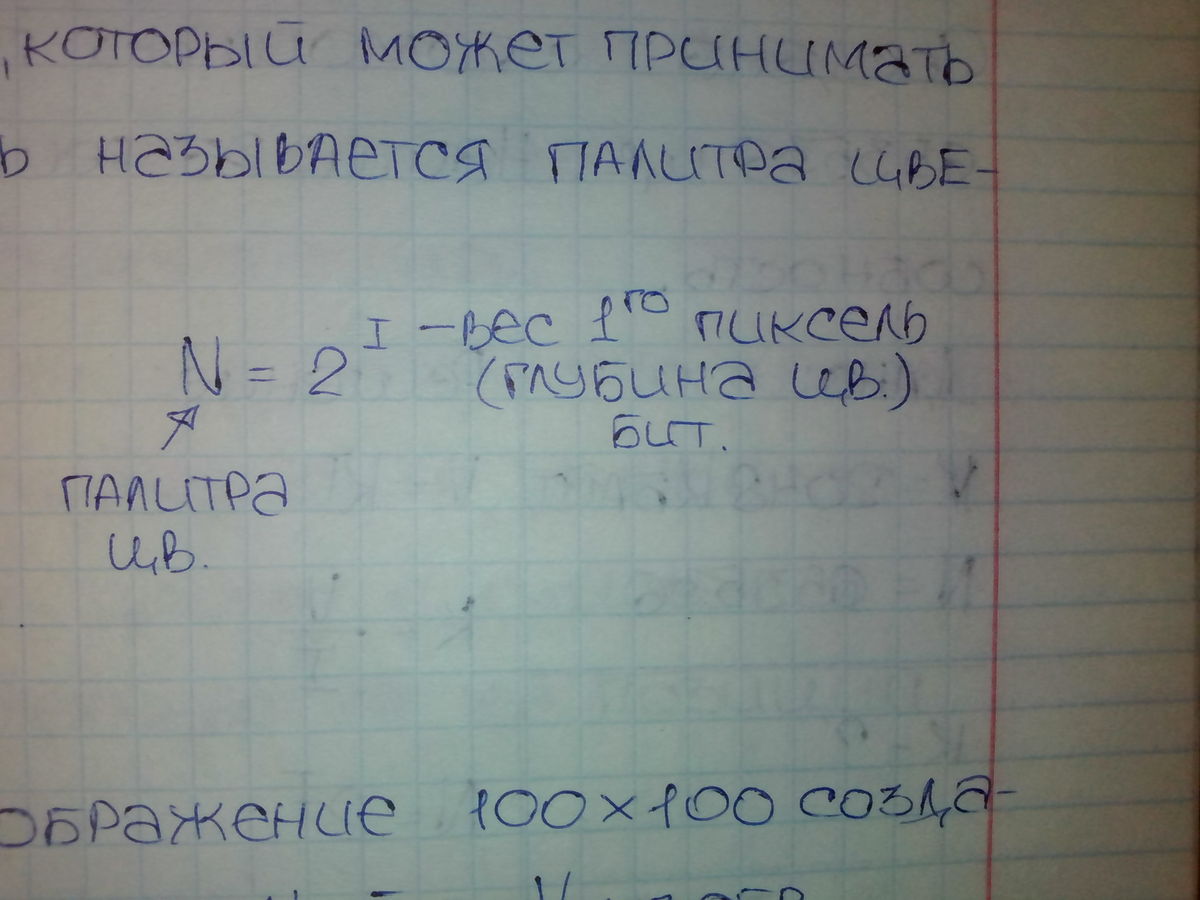 , который может принимать
ь называется палитра цве-
N = 2^I – вес 1го пиксель
(глубина цв.)
бит.
палитра
цв.
ображение 100×100 созда-